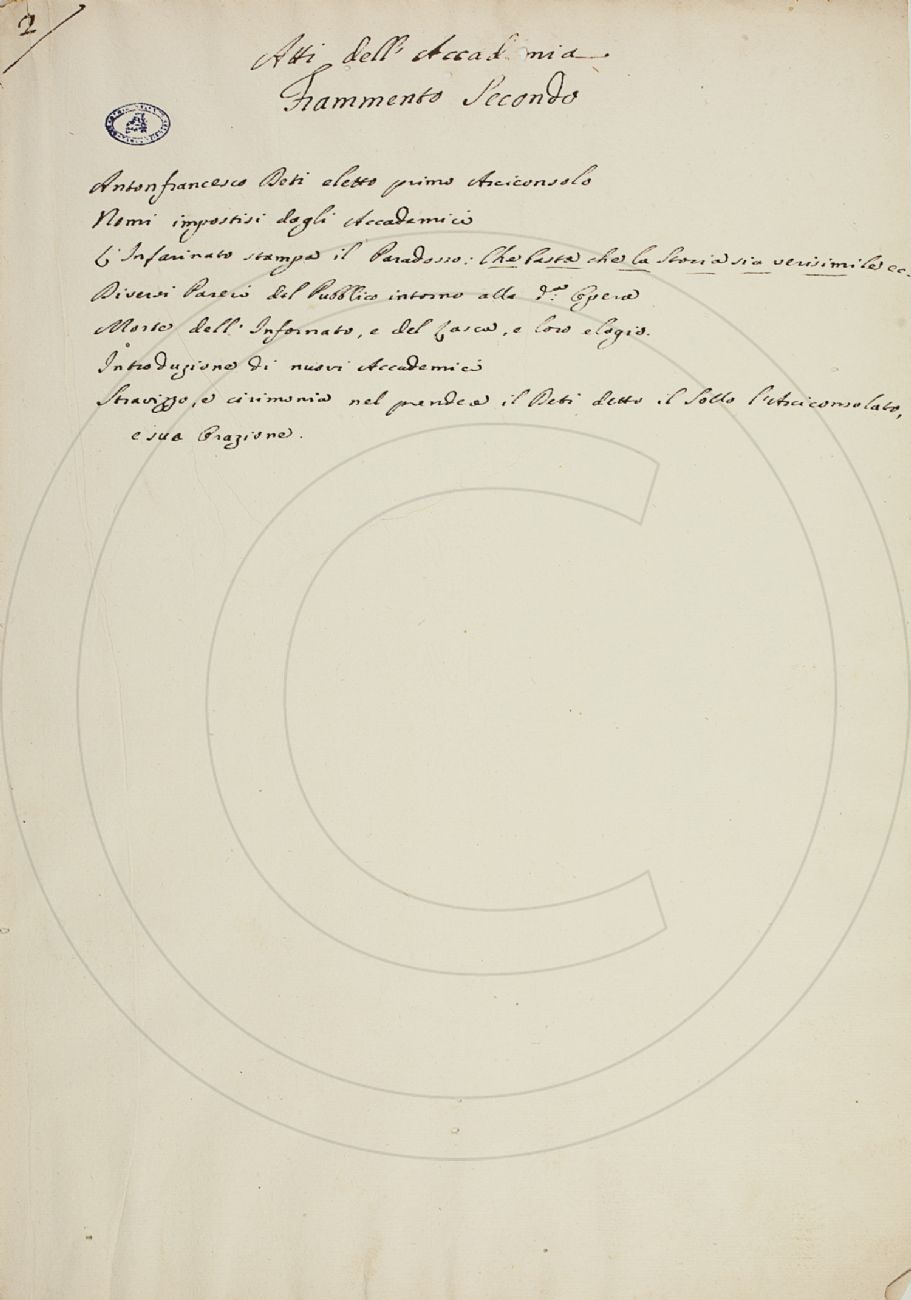 2
Atti dell' Accademia
Frammento Secondo
Antonfrancesco Beti eletto primo Arciconsolo
Nomi impostisi dagli Accademici
L'Infarinato stampa il Paradosso: Che basta che la Storia sia verisimile ec.
Diversi Pareri del Pubblico intorno alla d.ª Opera
Morte dell' Infornato, e del Lasca, e loro elogio.
Introduzione di nuovi Accademici
Stravizzo, e cirimonia nel prender il Beti detto il Sollo l'Arciconsolato,
e sua Orazione.